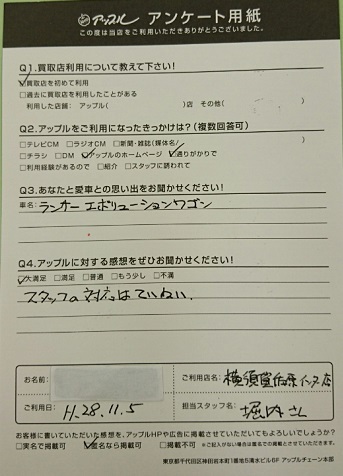 アップル アンケート用紙
この度は当店をご利用いただきありがとうございました。
Q1.買取店利用について教えて下さい!
☑買取店を初めて利用
□過去に買取店を利用したことがある
利用した店舗: アップル( )店 その他( )
Q2.アップルをご利用になったきっかけは?(複数回答可)
□テレビCM □ラジオCM □新聞・雑誌(媒体名/ )
□チラシ □DM ☑アップルのホームページ ☑通りがかりで
□利用経験があるので □紹介 □スタッフに誘われて
Q3.あなたと愛車との思い出をお聞かせください!
車名: ランサーエボリューションワゴン
Q4.アップルに対する感想をぜひお聞かせください!
☑大満足 □満足 □普通 □もう少し □不満
スタッフの対応はていねい。
お名前:
ご利用店名: 横須賀佐原インター店
ご利用日: H.28.11.5
担当スタッフ名: 堀内さん
お客様に書いていただいた感想を、アップルHPや広告に掲載させていただいてもよろしいでしょうか?
□実名で掲載可 ☑匿名なら掲載可 □掲載不可 ※ご記入がない場合は匿名での掲載とさせていただきます。
東京都千代田区神田岩本町1番地5清水ビル6F アップルチェーン本部